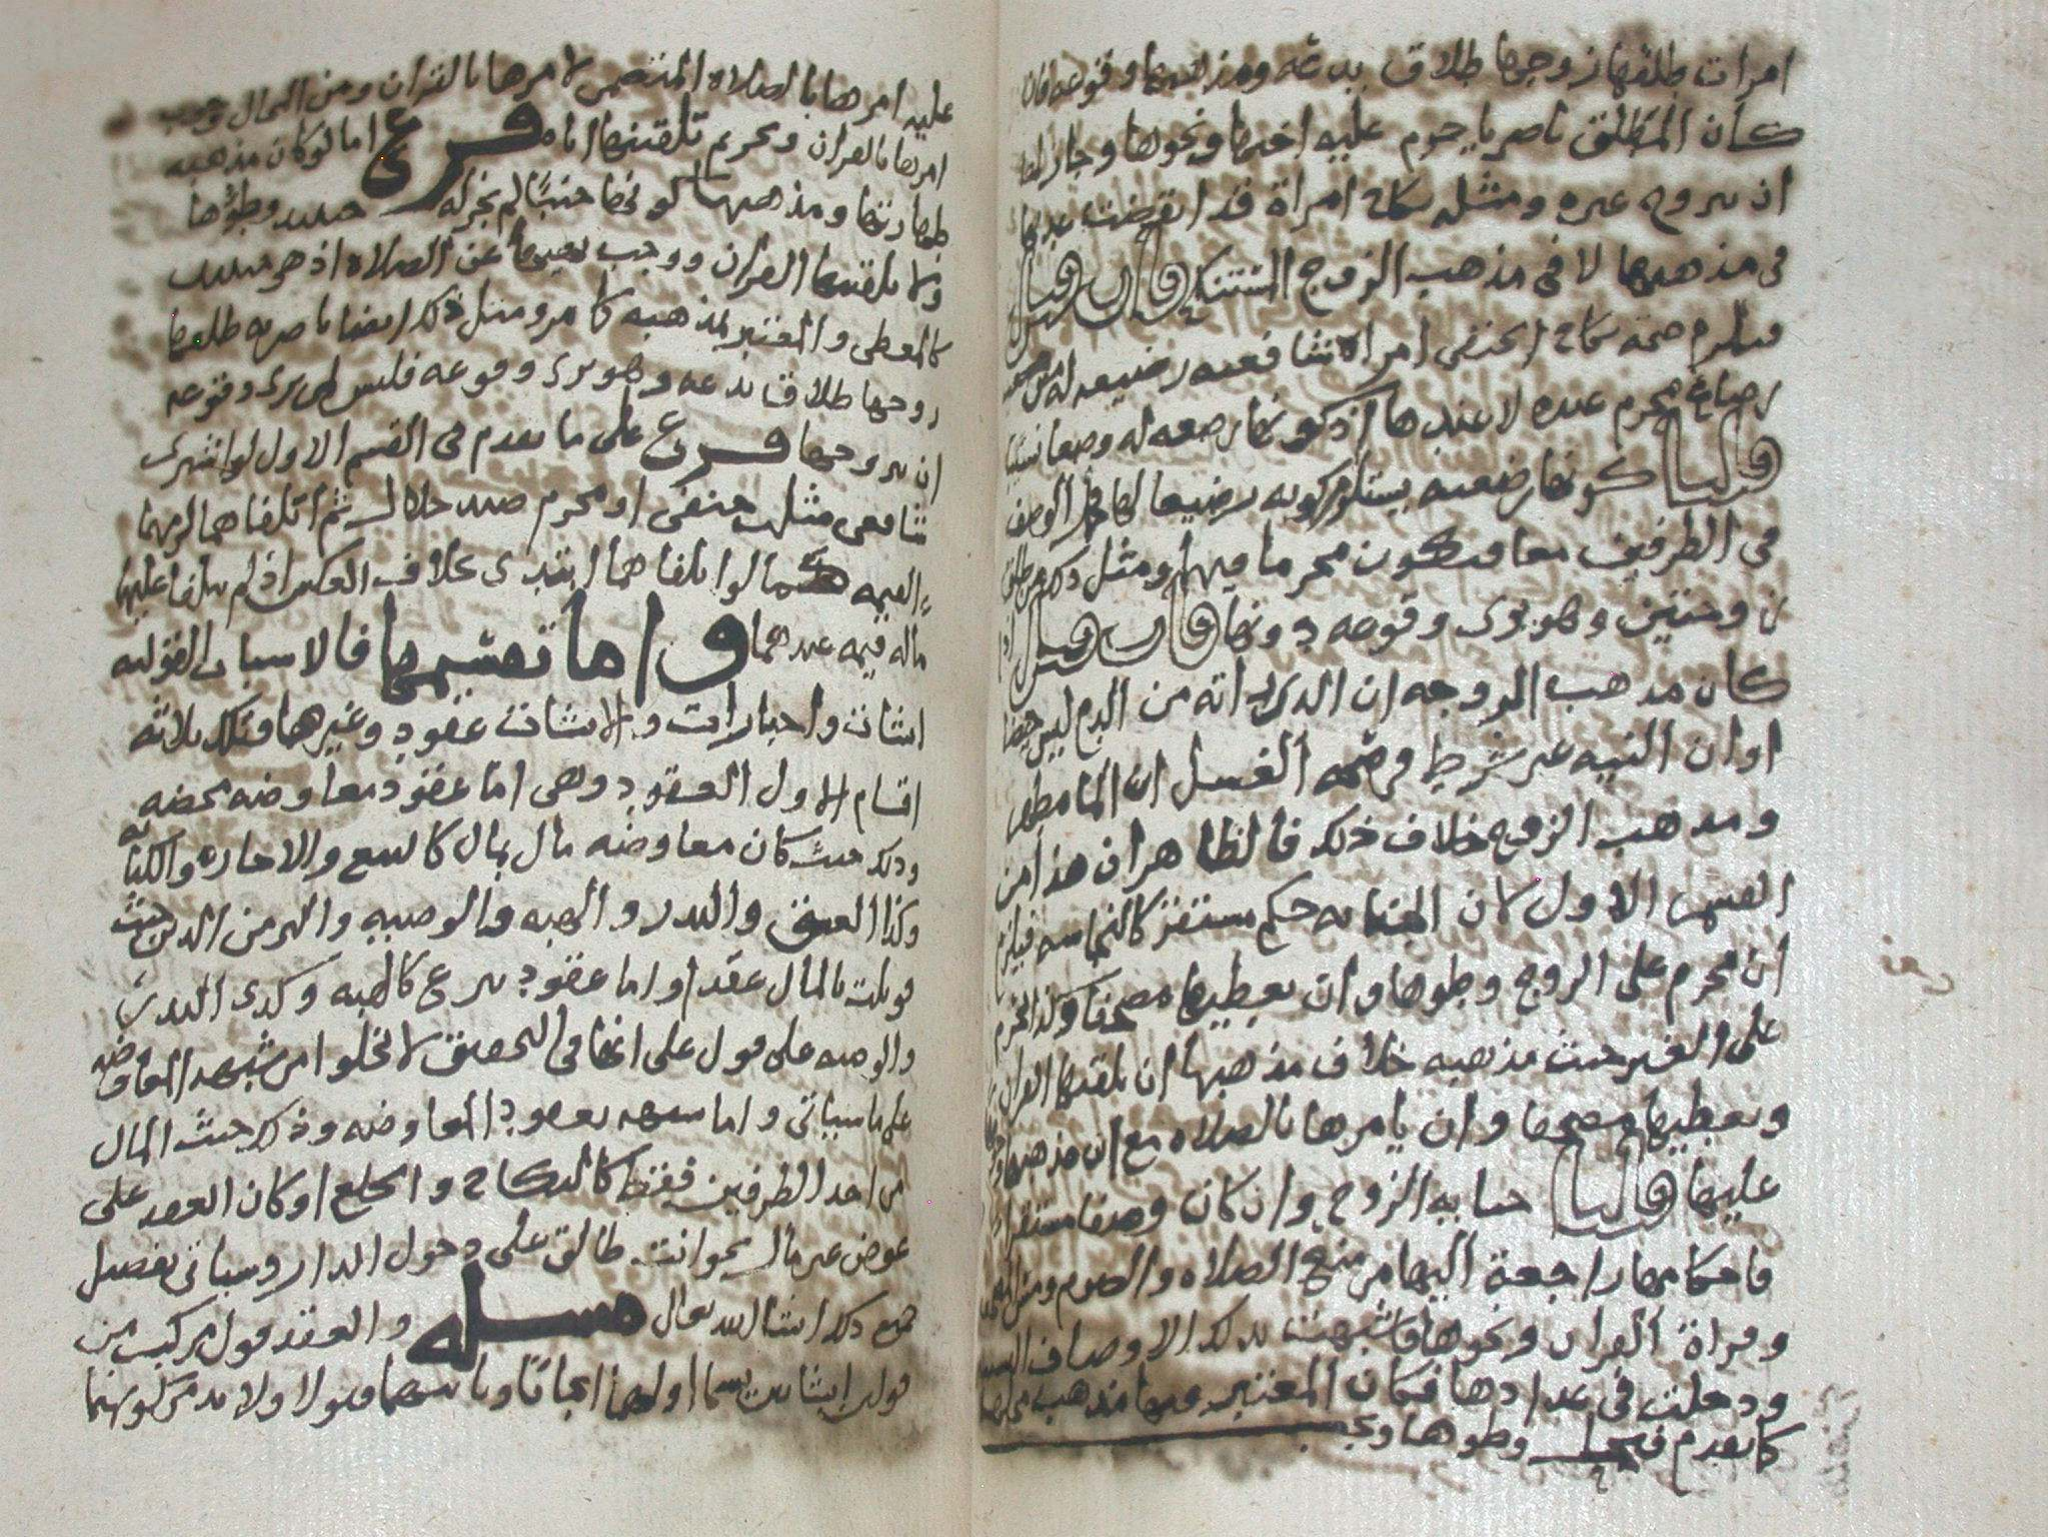 امرات طلقها زوجها طلاق بدعه ومذهبها وقوعه فان
كان المطلق ناصريا حرم عليه اختها ونحوها وجاز لها
ان تتزوج غيره ومثله نكاح امراة قد انقضت عدتها
في مذهبها لا في مذهب الزوج فان قيل
فيلزم صحة نكاح الحنفي امراة شافعيه رضيعه له من
رضاع محرم عنده لا عندها اذ كونها رضيعه له وصفا
قلنا كونها رضيعه يستلزم كونه رضيعا لها الوصف
في الطرفين معا فيكون محرما فيها ومثل ذلك من طلق
وهو يرى وقوعه دونها فان قيل اذا
كان مذهب الزوجه ان الذي راته من الدم ليس حيضا
او ان النيه غير شرط في صحة الغسل او ان الما مطهر
ومذهب الزوج خلاف ذلك فالظاهر ان هذا من
القسم الاول لان الجنابه حكم مستقر كالنجاسه فيلزم
ان يحرم على الزوج وطوها وان يعطيها مصحفا وكذا يحرم
على الغير حيث مذهبه خلاف مذهبها ان يلقنها القران
ويعطيها مصحفا وان يامرها بالصلاه مع ان مذهبها
عليها قلنا جنابه الزوج وان كان وصفا مستقرا
فاحكامها راجعة اليها من منع الصلاه والصوم ومس
وقراة القران ونحوها فاشبهت بذلك الاوصاف
ودخلت في عدادها فكان المعتبر فيها مذهب
كما تقدم فيحل وطوها ويجب
عليه امرها بالصلاه المتضمن لامرها بالقران ومن المحال وجوب
امرها بالقران وتحريم تلقينها اياه فرع اما لو كان مذهبه
طهارتها ومذهبها كونها جنبا لم يجز له حينئذ وطؤها
ولا تلقينها القران ووجب نهيها عن الصلاه اذ هو حينئذ
كالمعطي والمعتبر مذهبه كما مر ومثل ذلك ايضا ناصريه طلقها
زوجها طلاق بدعه وهو يرى وقوعه فليس لمن يرى وقوعه
ان يتزوجها فرع على ما تقدم في القسم الاول لو اشترى
شافعي مثلث حنفي او محرم صيد حلال ثم اتلفاهما لزمهما
القيمه كما لو اتلفاهما ابتدى بخلاف العكس اذ لم يتلفا عليهما
ماله قيمه عندهما واما تقسيمها فالاسباب القوليه
انشات واخبارات والانشات عقود وغيرها فتلك ثلاثه
اقسام الاول العقود وهي اما عقود معاوضه محضه
وذلك حيث كان معاوضه مال بمال كالبيع والاجاره والكتابه
وكذا العتق والنذر والهبه والوصيه والبر من الدين حيث
قوبلت بالمال عقدا واما عقود تبرع كالهبه وكذى النذر
والوصيه على قول على انها في التحقيق لا تخلوا من شبهة المعاوضه
على ما سياتي واما شبهه بعقود المعاوضه وذلك حيث المال
من احد الطرفين فقط كالنكاح والخلع او كان العقد على
عوض غير مال نحو انت طالق على دخول الدار وسياتي تفصيل
جميع ذلك ان شا الله تعالى مسله والعقد قول مركب من
قولين انشايين يسما اولهما ايجابا وثانيهما قبولا ولا بد من كونهما